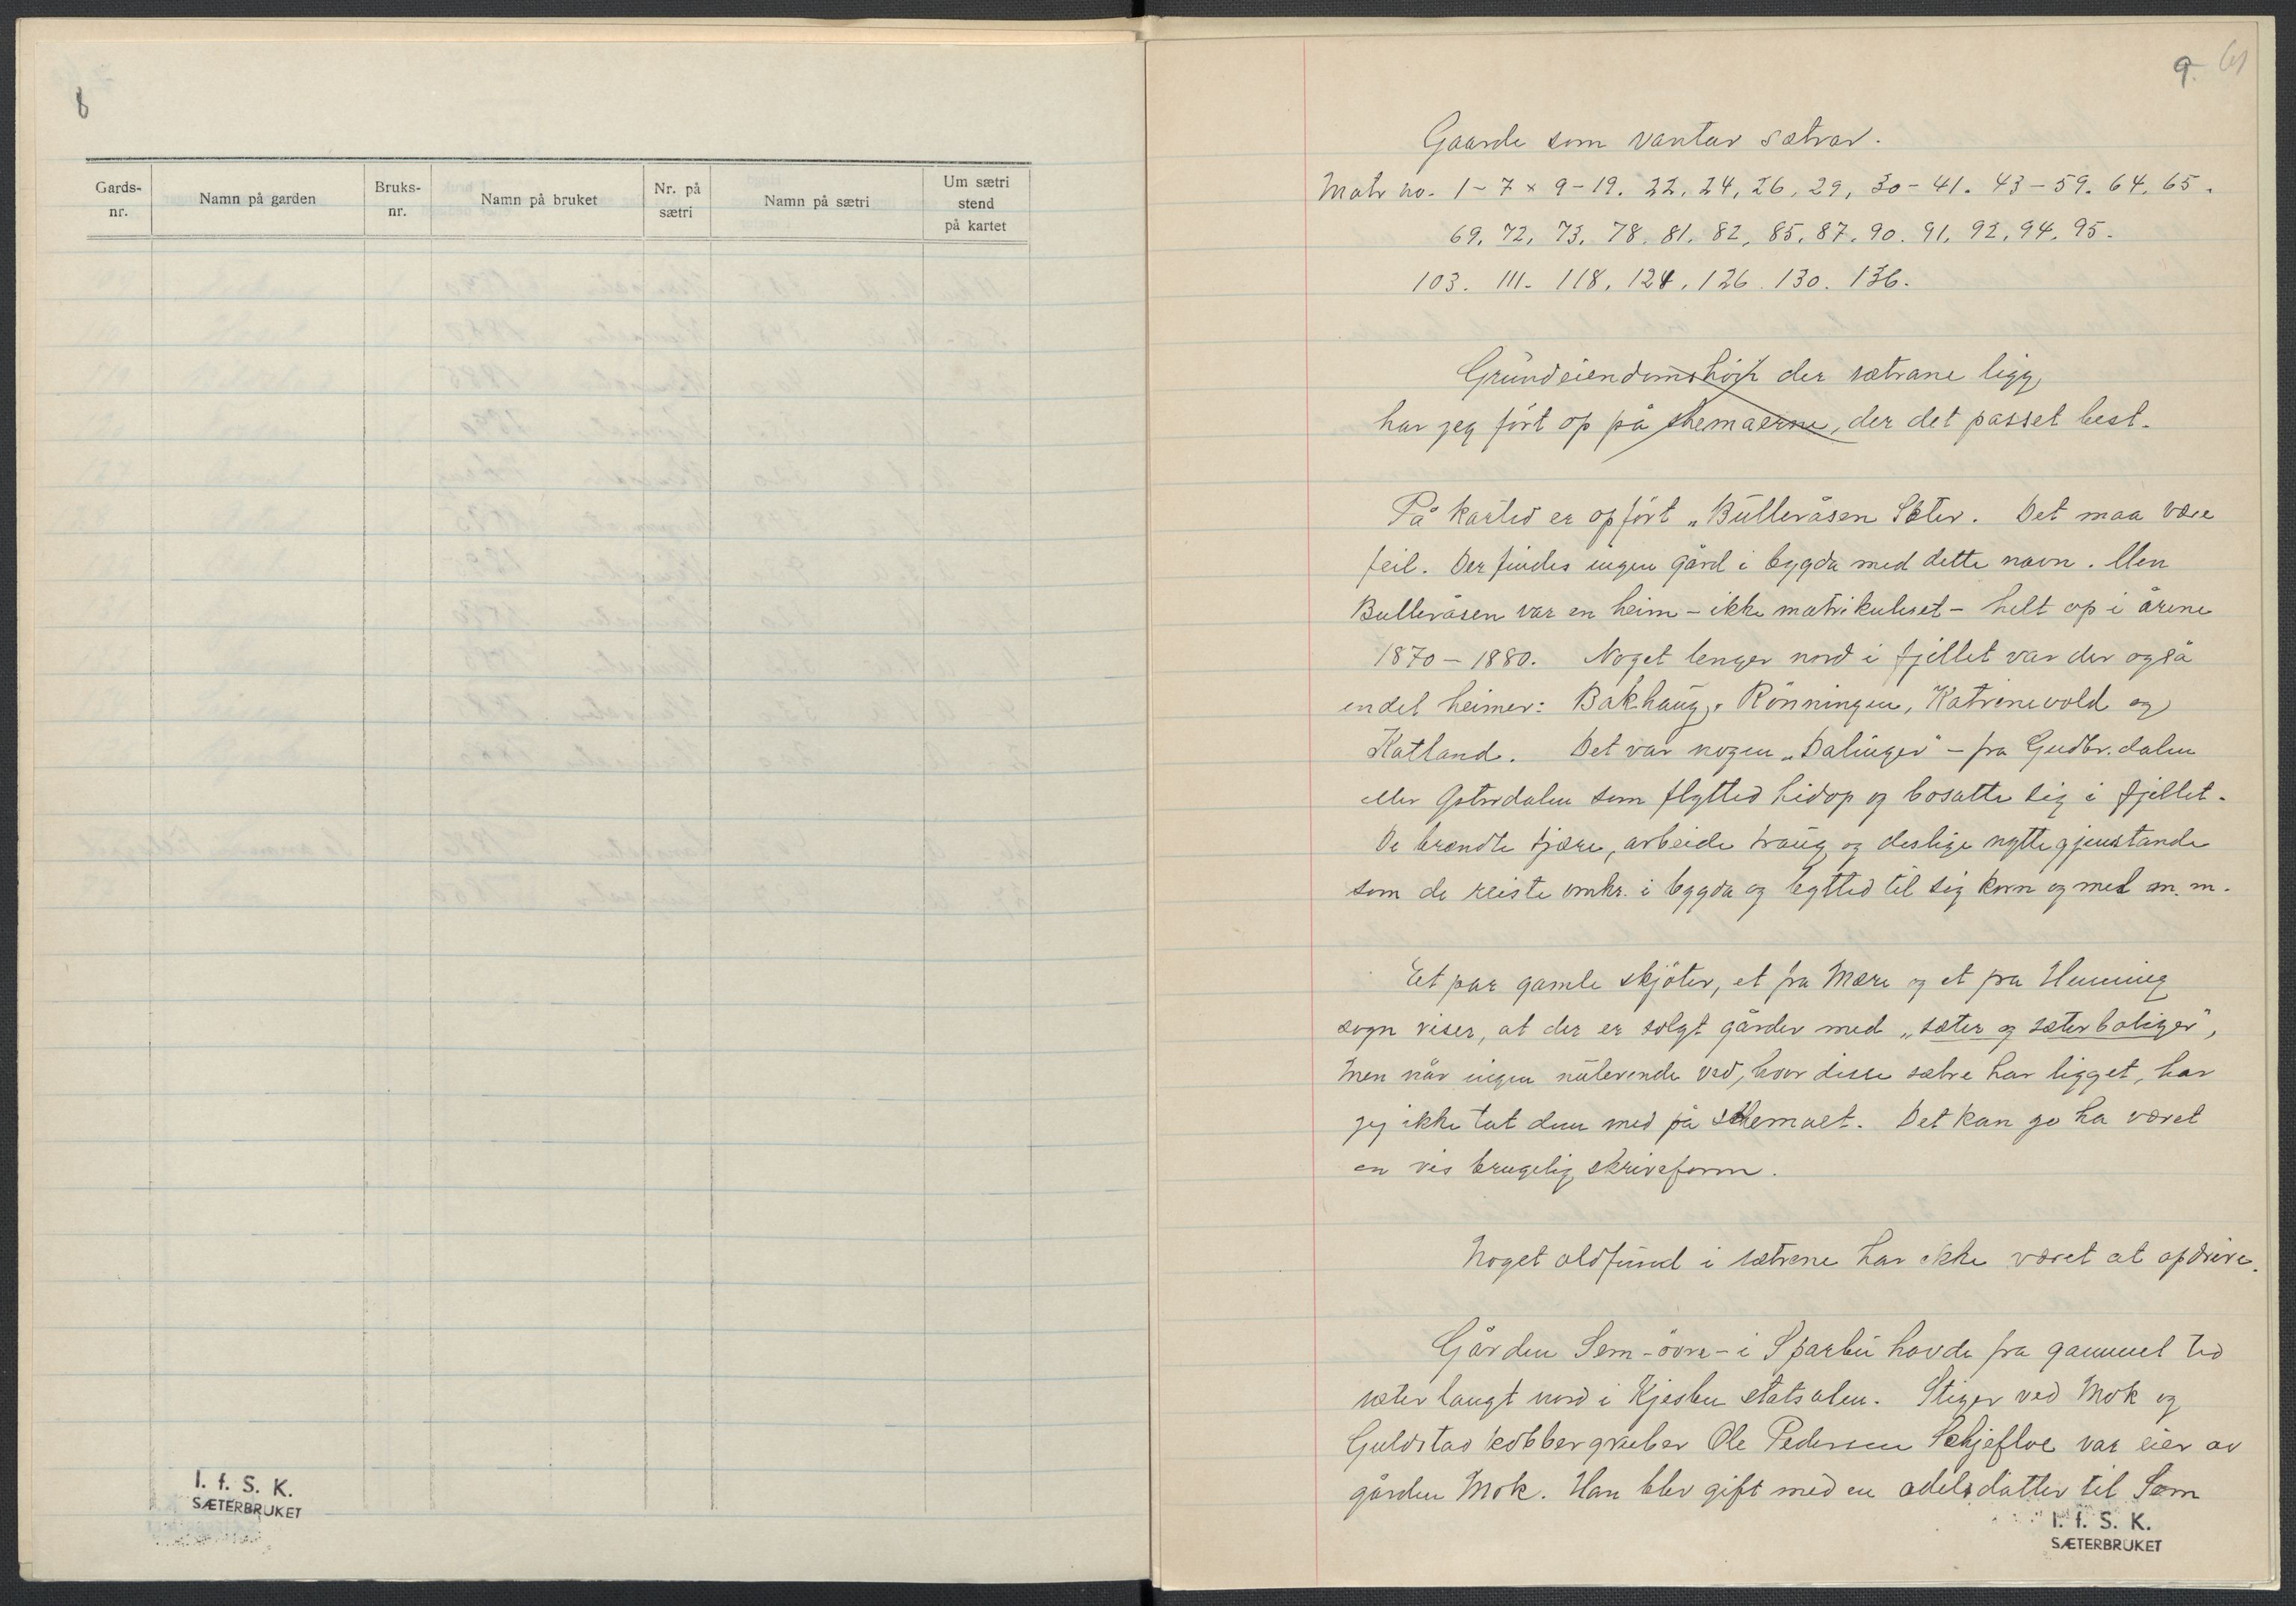 8
Gards-
nr.
Namn på garden
Bruks-
nr.
Namn på bruket
Nr. på
sætri
Namn på sætri
Um sætri
stend
på kartet
I. f. S. K.
SÆTERBRUKET
9. 61
Gaarde som vantar sætrar.
Matr no. 1-7 x 9-19. 22, 24, 26, 29, 30-41. 43-59. 64, 65.
69, 72, 73, 78, 81, 82, 85, 87, 90. 91, 92, 94, 95.
103. 111. 118, 124, 126. 130. 136.
Grundeiendoms der sætrane ligg,
har jeg ført op på skemaerne, der det passet best.
På karted er opført „Bulleråsen Sæter. Det maa være
feil. Der findes ingen gård i bygda med dette navn. Men
Bulleråsen var en heim - ikke matrikuleret - helt op i årene
1870-1880. Noget lenger nord i fjellet var der også
endel heimer: Bakhaug, Rønningen, Katrinevold og
Katland. Det var nogen „Dalinger" - fra Gudbr.dalen
eller Østerdalen som flytted hidop og bosatte sig i fjellet.
De brændte tjære, arbeide traug og deslige nyttegjenstande
som de reiste omkr. i bygda og bytted til sig korn og mel m. m.
Et par gamle skjøter, et fra Mære og et fra Henning
sogn viser, at der er solgt gårder med „sæter og sæterboliger",
men når ingen nulevende ved, hvor disse sætre har ligget, har
jeg ikke tat dem med på skemaet. Det kan jo ha været
en vis brugelig skriveform.
Noget oldfund i sætrene har ikke været at opdrive.
Gården Sem - øvre - i Sparbu havde fra gammel tid
sæter langt nord i Kjesbu statsalm. Stiger ved Mok og
Guldstad kobbergruber Ole Pedersen Schjefloe var eier av
gården Mok. Han blev gift med en odelsdatter til Sem
I. f. S. K.
SÆTERBRUKET